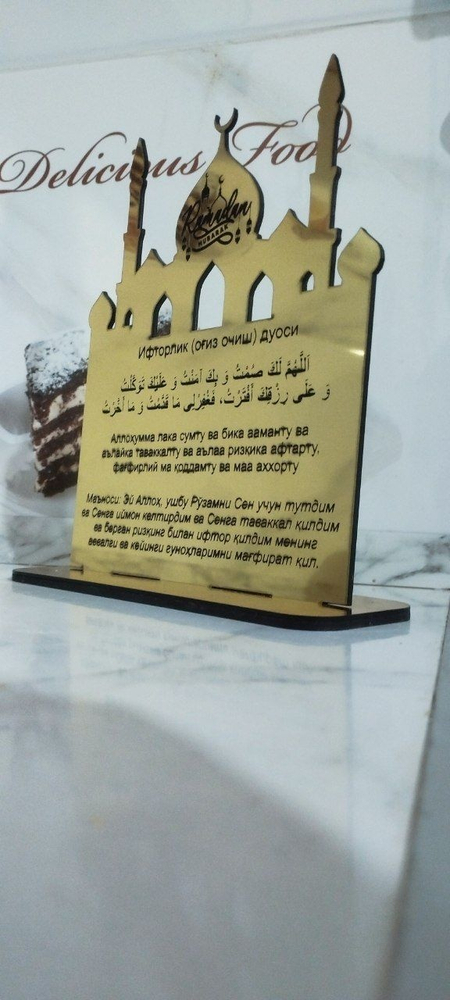 Delicious Food
Ramadan
MUBARAK
Ифторлик (оғиз очиш) дуоси
اَللَّهُمَّ لَكَ صُمْتُ وَ بِكَ آمَنْتُ وَ عَلَيْكَ تَوَكَّلْتُ
وَ عَلَى رِزْقِكَ أَفْتَرْتُ، فَغْفِرْلِى مَا قَدَّمْتُ وَ مَا أَخَّرْتُ
Аллоҳумма лака сумту ва бика ааманту ва
аълайка таваккалту ва аълаа ризқика афтарту,
фағфирлий ма қоддамту ва маа аххорту
Маъноси: Эй Аллоҳ, ушбу Рўзамни Сен учун тутдим
ва Сенга иймон келтирдим ва Сенга таваккал қилдим
ва берган ризқинг билан ифтор қилдим менинг
аввалги ва кейинги гуноҳларимни мағфират қил.